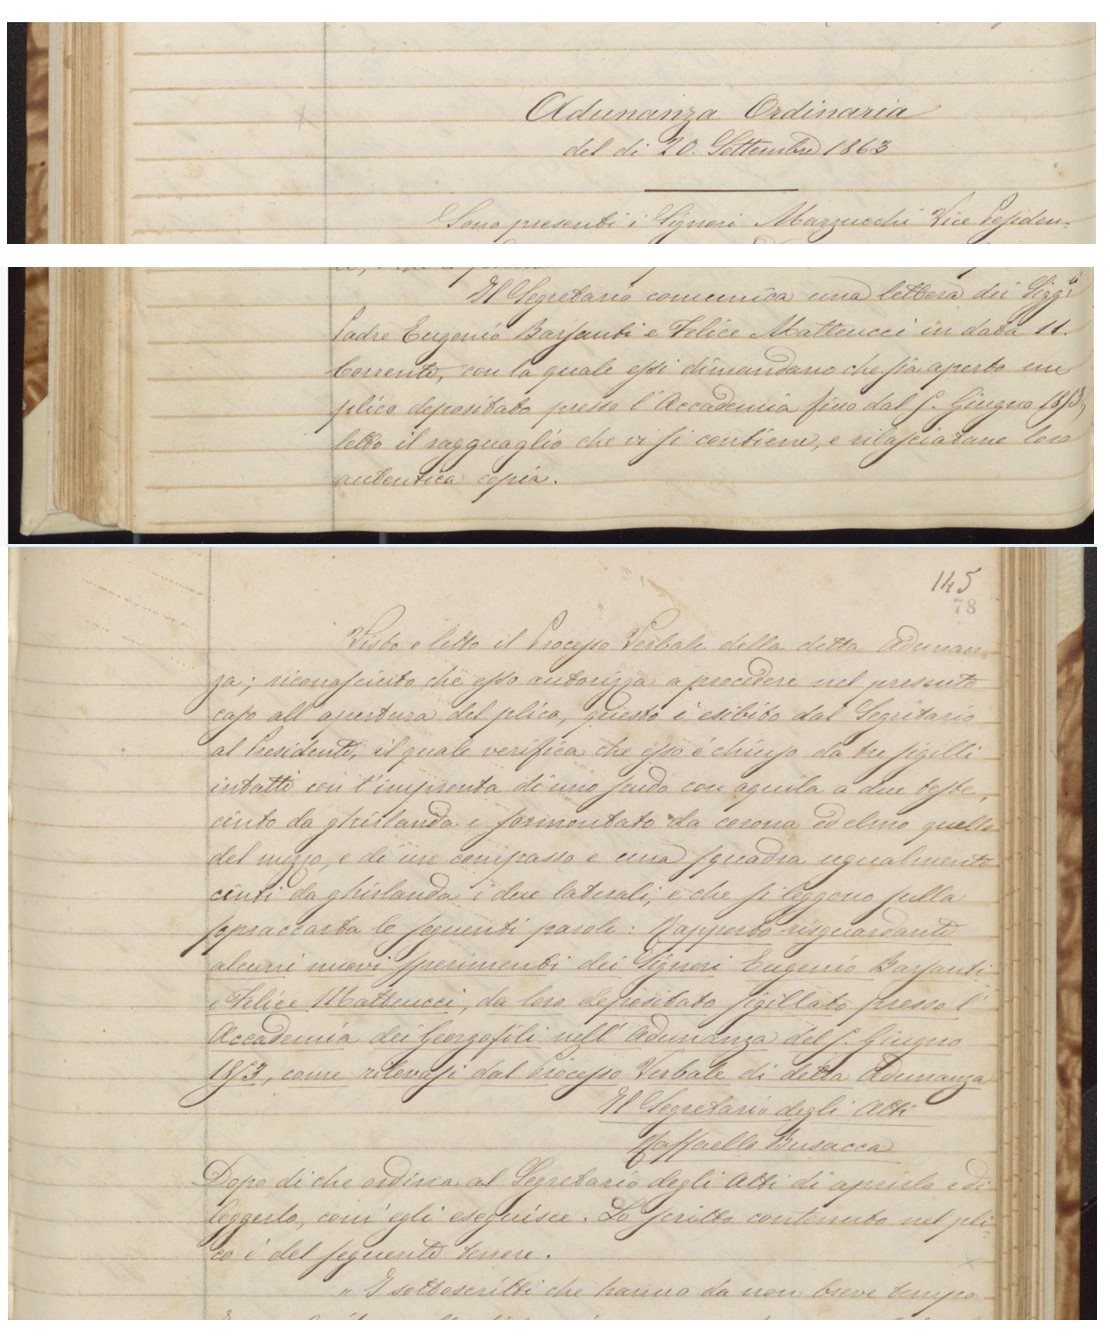 Adunanza Ordinaria
del di 20. Settembre 1863
Sono presenti i Signori Mazzucchi Vice Presiden-
Il Segretario comunica una lettera dei Sigg.ri
Padre Eugenio Barsanti e Felice Matteucci in data 11.
Corrente, con la quale essi dimandano che sia aperto un
plico depositato presso l'Accademia fino dal 5. Giugno 1853,
letto il ragguaglio che vi si contiene, e rilasciatane loro
autentica copia.
145
78
Visto e letto il Processo Verbale della detta Adunan-
za; riconosciuto che esso autorizza a procedere nel presente
caso all'apertura del plico, questo è esibito dal Segretario
al Presidente, il quale verifica che esso è chiuso da tre sigilli
intatti con l'impronta di uno scudo con aquila a due teste,
cinto da ghirlanda e sormontato da corona ed elmo quello
del mezzo, e di un compasso e una squadra ugualmente
cinti da ghirlanda i due laterali, e che si leggono sulla
sopraccarta le seguenti parole: Rapporto risguardante
alcuni nuovi sperimenti dei Signori Eugenio Barsanti
e Felice Matteucci, da loro depositato sigillato presso l'
Accademia dei Georgofili nell'Adunanza del 5. Giugno
1853, come rilevasi dal Processo Verbale di detta Adunanza
Il Segretario degli Atti
Raffaello Busacca
Dopo di che ordina al Segretario degli Atti di aprirlo e di
leggerlo, com'egli eseguisce. Lo scritto contenuto nel pli-
co è del seguente tenore.
" I sottoscritti che hanno da non breve tempo